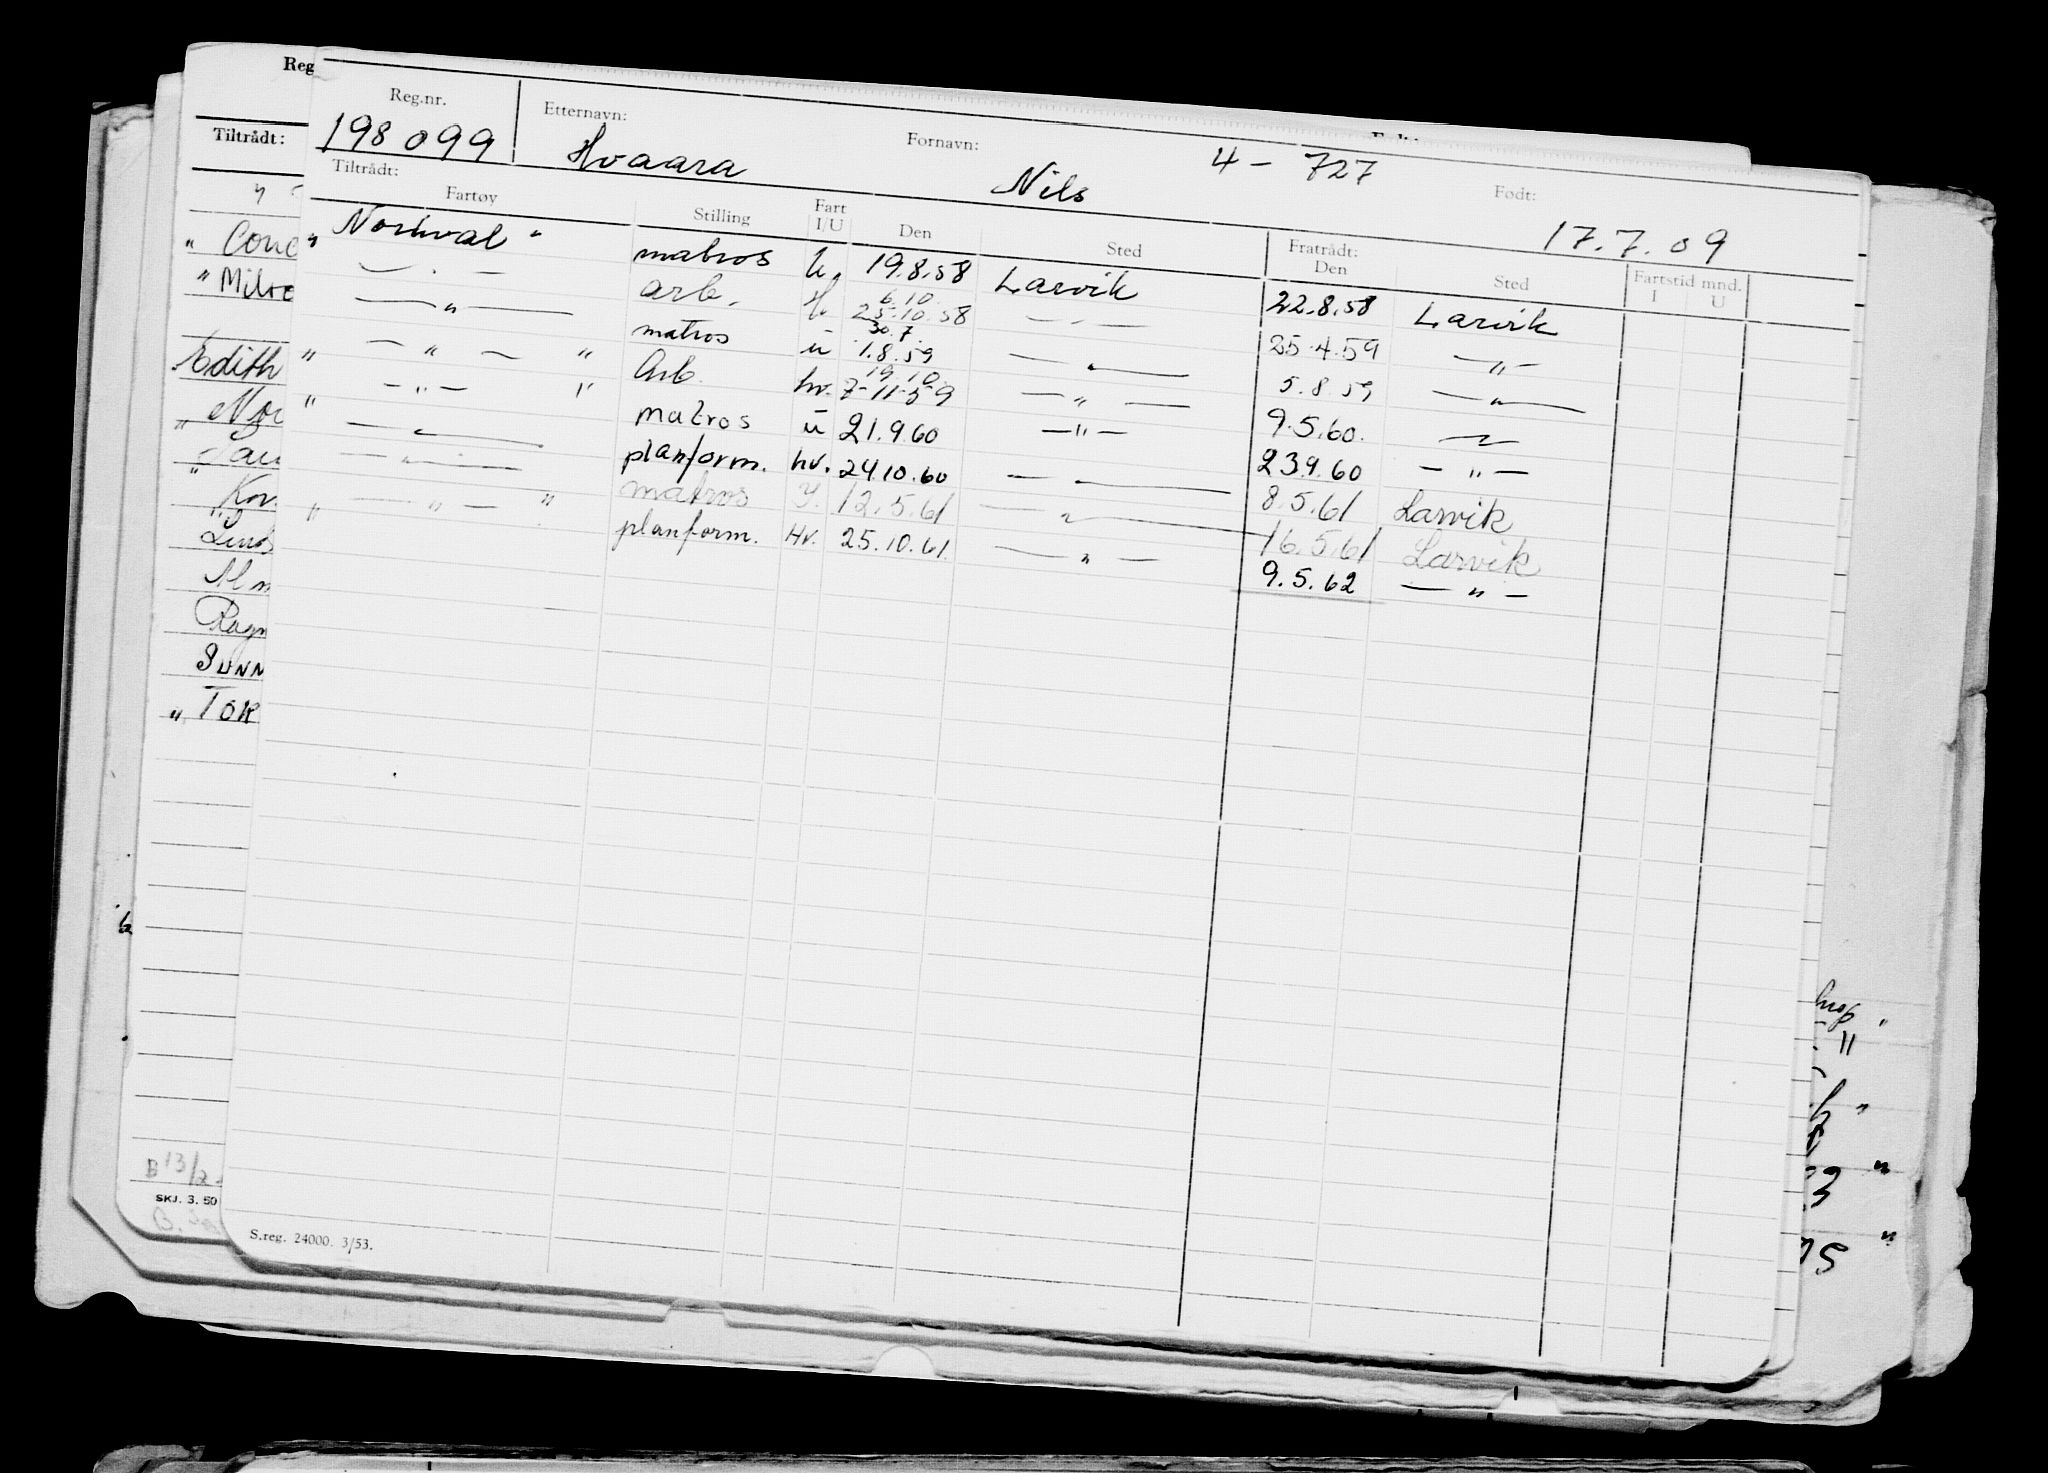 Reg
Tiltrådt:
Reg.nr. Etternavn: Fornavn: 4 - 727 Født:
198099 Hvaara Nils 17.7.09
Tiltrådt:
Fartøy Stilling Fart I/U Den Sted Fratrådt: Den Sted Fartstid mnd. I U
" Norhval " matros U. 19.8.58 Larvik 22.8.58 Larvik
— . — arb. H. 6.10. 25.10.58 — " — 25.4.59 — " —
— " — matros u 30.7. 1.8.59 — " — 5.8.59 — " —
" — " — " Arb. hv. 19.10. 7-11-59 — " — 9.5.60. — " —
" — " — " matros u 21.9.60 — " — 23.9.60 — " —
— " — planform. hv. 24.10.60 — " — 8.5.61 Larvik
— " — matros 12.5.61 — " — 16.5.61 Larvik
" — " — " planform. Hv. 25.10.61. — " — 9.5.62 — " —
" Conc
" Milre
Edith
" Nor
" Kor.
Linds
Ragn
SUNN
" TOR
B 13/2
SKJ. 3. 50
S.reg. 24000. 3/53.